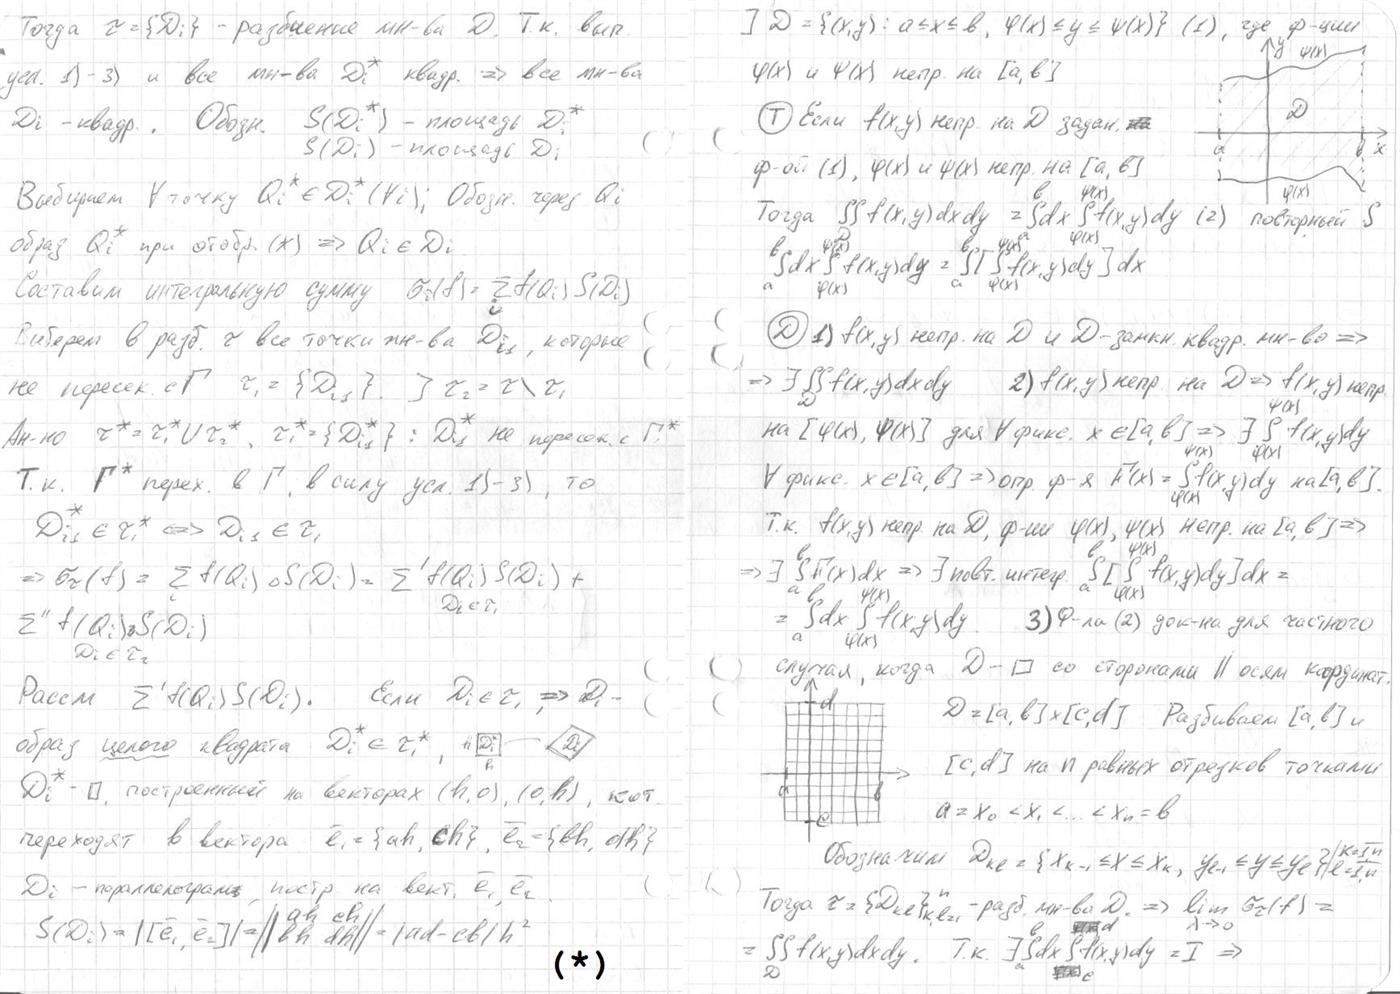 Тогда τ={Di} - разбиение мн-ва D. Т.к. вып.
усл. 1)-3) и все мн-ва Di* квадр. => все мн-ва
Di - квадр. Обозн. S(Di*) - площадь Di*
S(Di) - площадь Di
Выбираем ∀ точку Qi* ∈ Di* (∀i); Обозн. через Qi
образ Qi* при отобр. (*) => Qi ∈ Di
Составим интегральную сумму στ(f) = Σi f(Qi) S(Di)
Выберем в разб. τ все точки мн-ва Di1, которые
не пересек. с Γ τ1 = {Di1}. ] τ2 = τ\τ1
Ан-но τ* = τ1* ∪ τ2*, τ1* = {Di1*} : Di1* не пересек. с Γ*
Т.к. Γ* перех. в Γ, в силу усл. 1)-3), то
Di1* ∈ τ1* <=> Di1 ∈ τ1
=> στ(f) = Σi f(Qi) S(Di) = Σ' f(Qi) S(Di) +
Di ∈ τ1
Σ'' f(Qi) S(Di)
Di ∈ τ2
Рассм Σ' f(Qi) S(Di). Если Di ∈ τ1, => Di -
образ целого квадрата Di* ∈ τ1*, h Di* Di
h
Di* - □, построенный на векторах (h,0), (0,h), кот.
переходят в вектора e̅1 = {ah, ch}, e̅2 = {bh, dh}
Di - параллелограмм, постр. на вект. e̅1, e̅2
S(Di) = |[e̅1, e̅2]| = || ah ch
bh dh || = |ad-cb| h²
(*)
] D = {(x,y): a≤x≤b, φ(x)≤y≤ψ(x)} (1), где ф-ции
φ(x) и ψ(x) непр. на [a,b]
y ψ(x) D a b x φ(x)
(Т) Если f(x,y) непр. на D задан.
ф-ой (1), φ(x) и ψ(x) непр. на [a,b]
Тогда ∬D f(x,y)dxdy = ∫ab dx ∫φ(x)ψ(x) f(x,y)dy (2) повторный ∫
∫ab dx ∫φ(x)ψ(x) f(x,y)dy = ∫ab [∫φ(x)ψ(x) f(x,y)dy] dx
(Д) 1) f(x,y) непр. на D и D - замкн. квадр. мн-во =>
=> ∃ ∬D f(x,y)dxdy 2) f(x,y) непр. на D => f(x,y) непр.
на [φ(x), ψ(x)] для ∀ фикс. x ∈ [a,b] => ∃ ∫φ(x)ψ(x) f(x,y)dy
∀ фикс. x ∈ [a,b] => опр. ф-я F(x) = ∫φ(x)ψ(x) f(x,y)dy на [a,b].
Т.к. f(x,y) непр на D, ф-ии φ(x), ψ(x) непр. на [a,b] =>
=> ∃ ∫ab F(x)dx => ∃ повт. интегр. ∫ab [∫φ(x)ψ(x) f(x,y)dy] dx =
= ∫ab dx ∫φ(x)ψ(x) f(x,y)dy 3) Ф-ла (2) док-на для частного
случая, когда D - □ со сторонами || осям координат.
d a b c
D = [a,b]×[c,d] Разбиваем [a,b] и
[c,d] на n равных отрезков точками
a = x0 < x1 < ... < xn = b
Обозначим Dkl = {xk-1 ≤ x ≤ xk, yl-1 ≤ y ≤ yl} | k=1,n
l=1,n
Тогда τ = {Dkl}nk,l=1 - разб. мн-ва D. => lim λ→0 στ(f) =
= ∬D f(x,y)dxdy. Т.к. ∃ ∫ab dx ∫cd f(x,y)dy = I =>